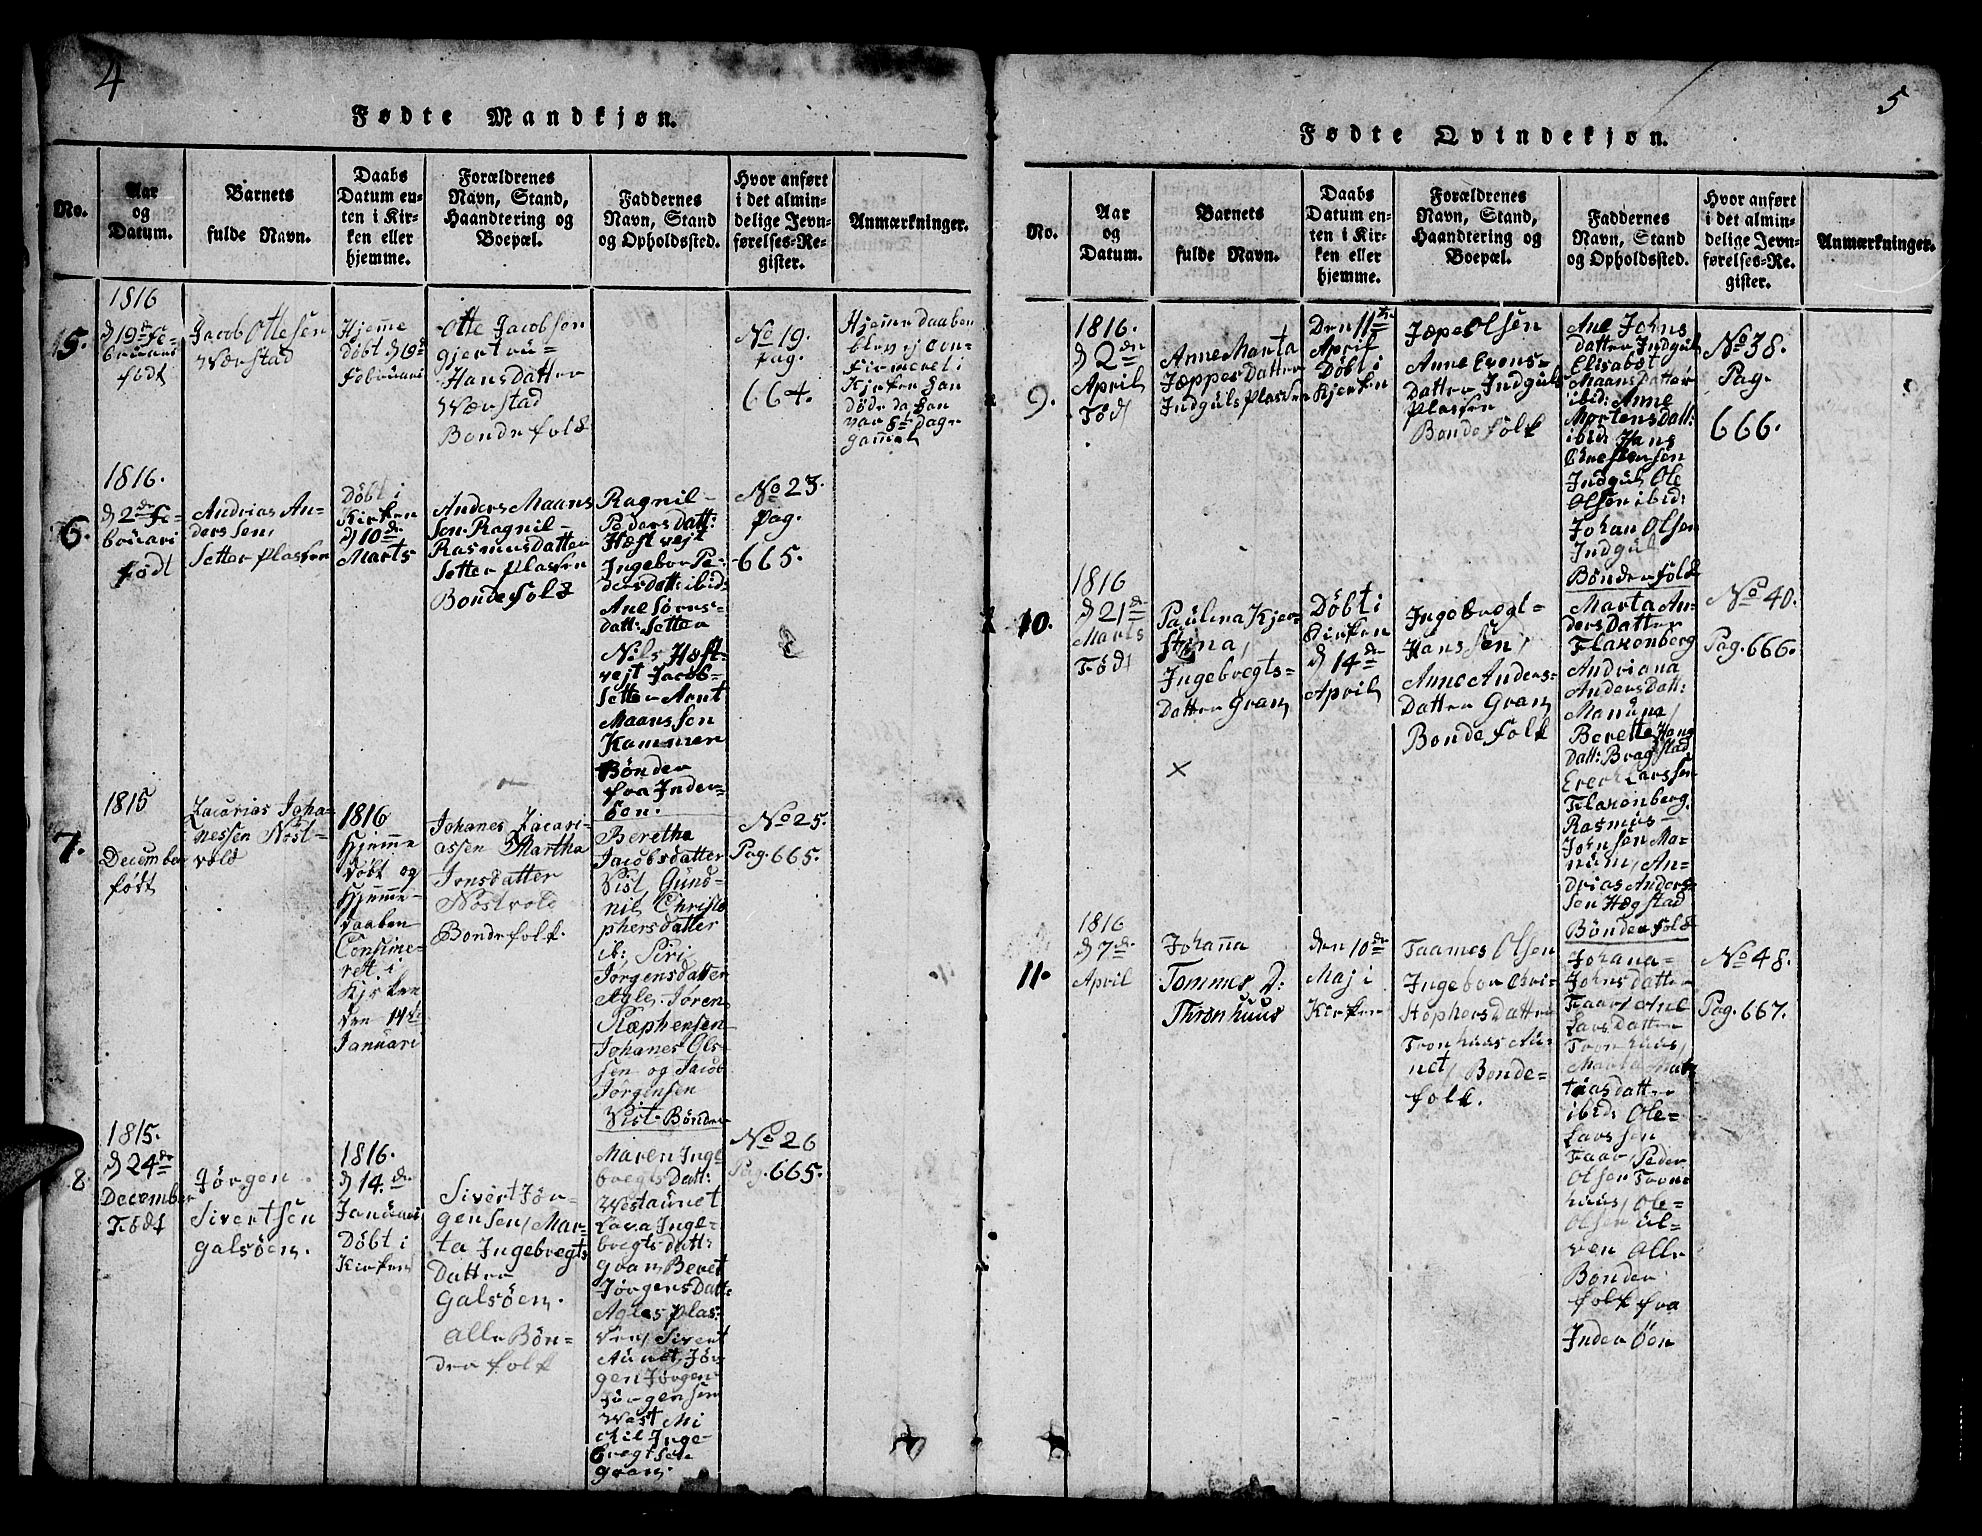 4
Fødte Mandkjøn.
No.
Aar
og
Datum.
Barnets
fulde Navn.
Daabs
Datum en-
ten i Kir-
ken eller
hjemme.
Forældrenes
Navn, Stand,
Haandtering og
Boepæl.
Faddernes
Navn, Stand
og Opholdssted.
Hvor anført
i det almin-
delige Jevn-
førelses-Re-
gister.
Anmærkninger.
5.
1816
d 19de Fe-
bruari
født
Jacob Ottesen
Værstad
Hjemme
Døbt d 19de
Februari
Otte Jacobsen
gjertru-
Hansdatter
Værstad
Bondefolk
No 19.
pag.
664.
Hjemme daaben
blev ej con-
firmeret i
Kjrken han
døde da han
var 8te dage
gammel
6.
1816.
d 2de Fe-
bruari
født
Andrias An-
dersen
Setter plassen
Døbt i
Kirken
d 10de
Marts
Anders Maans
sen Ragnil-
Rasmusdatter
Setter plassen
Bondefolk
Ragnil-
Pedersdatt:
Hæstvejt
Ingebor Pe-
dersdatt: ibid:
Ane Sørens-
datt: Setter
Nils Hæst-
vejt Jacob-
Setter Arnt
Maanssen
Kammen
Bønder
fra Inder-
øen.
No 23.
pag.
665.
7.
1815
December
født
Zacarias Joha-
nessen Nøst-
vold
1816
Hjemme
døbt og
Hjemme-
daaben
Confirme-
rett i
Kjrken
den 14de
Januari
Johanes Zacari-
assen Martha
Jonsdatter
Nøstvold
Bondefolk.
Beretha
Jacobsdatter
Vist, Gund-
nil Christo
phersdatter
ib: Siri
Jørgensdatter
Agle, Jøren
Stæphensen
Johanes Ols-
sen og Jacob
Jørgensen
Vist. Bønder
No 25.
Pag. 665.
8.
1815.
d 24de
December
Født
Jørgen
Sivertsen
galsøen.
1816.
d 14de
Januari
Døbt i
Kirken
Sivert Jør-
gensen, Mar-
ta Ingebregts
Datter
galsøen.
Alle Bøn-
der folk
Maren Inge
bregts Datt:
Vestaunet
Lava Inge-
bregts datt:
gran Beret
Jørgens Datt:
Agles plas-
sen, Sivert
Aunet, Jør-
gen Jørgen
Jørgensen
Vast Mi
chil Inge-
bregtsen
gran.
No 26
Pag. 665.
5
Fødte Qvindekjøn.
No.
Aar
og
Datum.
Barnets
fulde Navn.
Daabs
Datum en-
ten i Kir-
ken eller
hjemme.
Forældrenes
Navn, Stand,
Haandtering og
Boepæl.
Faddernes
Navn, Stand
og Opholdssted.
Hvor anført
i det almin-
delige Jevn-
førelses-Re-
gister.
Anmærkninger.
9.
1816.
d 2den
April
Født
Anne Marta
Jæppes Datter
Indguls Plassen
Den 11te
April
Døbt i
Kjrken
Jæpe Olsen
Anne Evens-
Datter Indguls
plassen
Bondefolk
Ane Johns
datter Indgul
Elisabet
Maans Datter
ibid: Anne
Mortens Datt:
ibid: Hans
Christensen
Indgul Ole
Olsen ibid:
Johan Olsen
Indgul
Bønder folk
No 38.
Pag.
666.
10.
1816
d 21de
Marts
Født
Paulina Kjer-
stina,
Ingebregts-
Datter Gran,
Døbt i
Kirken
d 14de
April
Ingebregt-
Hanssen,
Anne Anders-
Datter Gran,
Bondefolk
Marta An-
ders Datter
Flaxenberg
Andriana
Anders Datt:
Manuna,
Berette Hans
Datt: Bragstad
Ereck Larssen
Flaxenberg
Rasmus-
Johnsen Ma-
num, An-
drias Anders-
sen Hægstad
Bønder folk
No 40.
Pag. 666.
×
11.
1816
d 7de
April
Johanna
Tommes D:
Thronhuus
den 10de
Maj i
Kirken
Taames Olsen
Ingebor Chri-
stophers Datter
Tronhuus Au-
net, Bonde-
folk.
Johana-
Johnsdatter
Faar, Ane
Lars Datter
Tronhuus,
Marta Mat-
tiasdatter
ibid: Ole-
Larssen
Faar, Peder
Olsen Tron-
huus, Ole-
Olsen Ul-
ven Alle
Bonder
folk fra
Inder Øen
No 48.
Pag. 667.